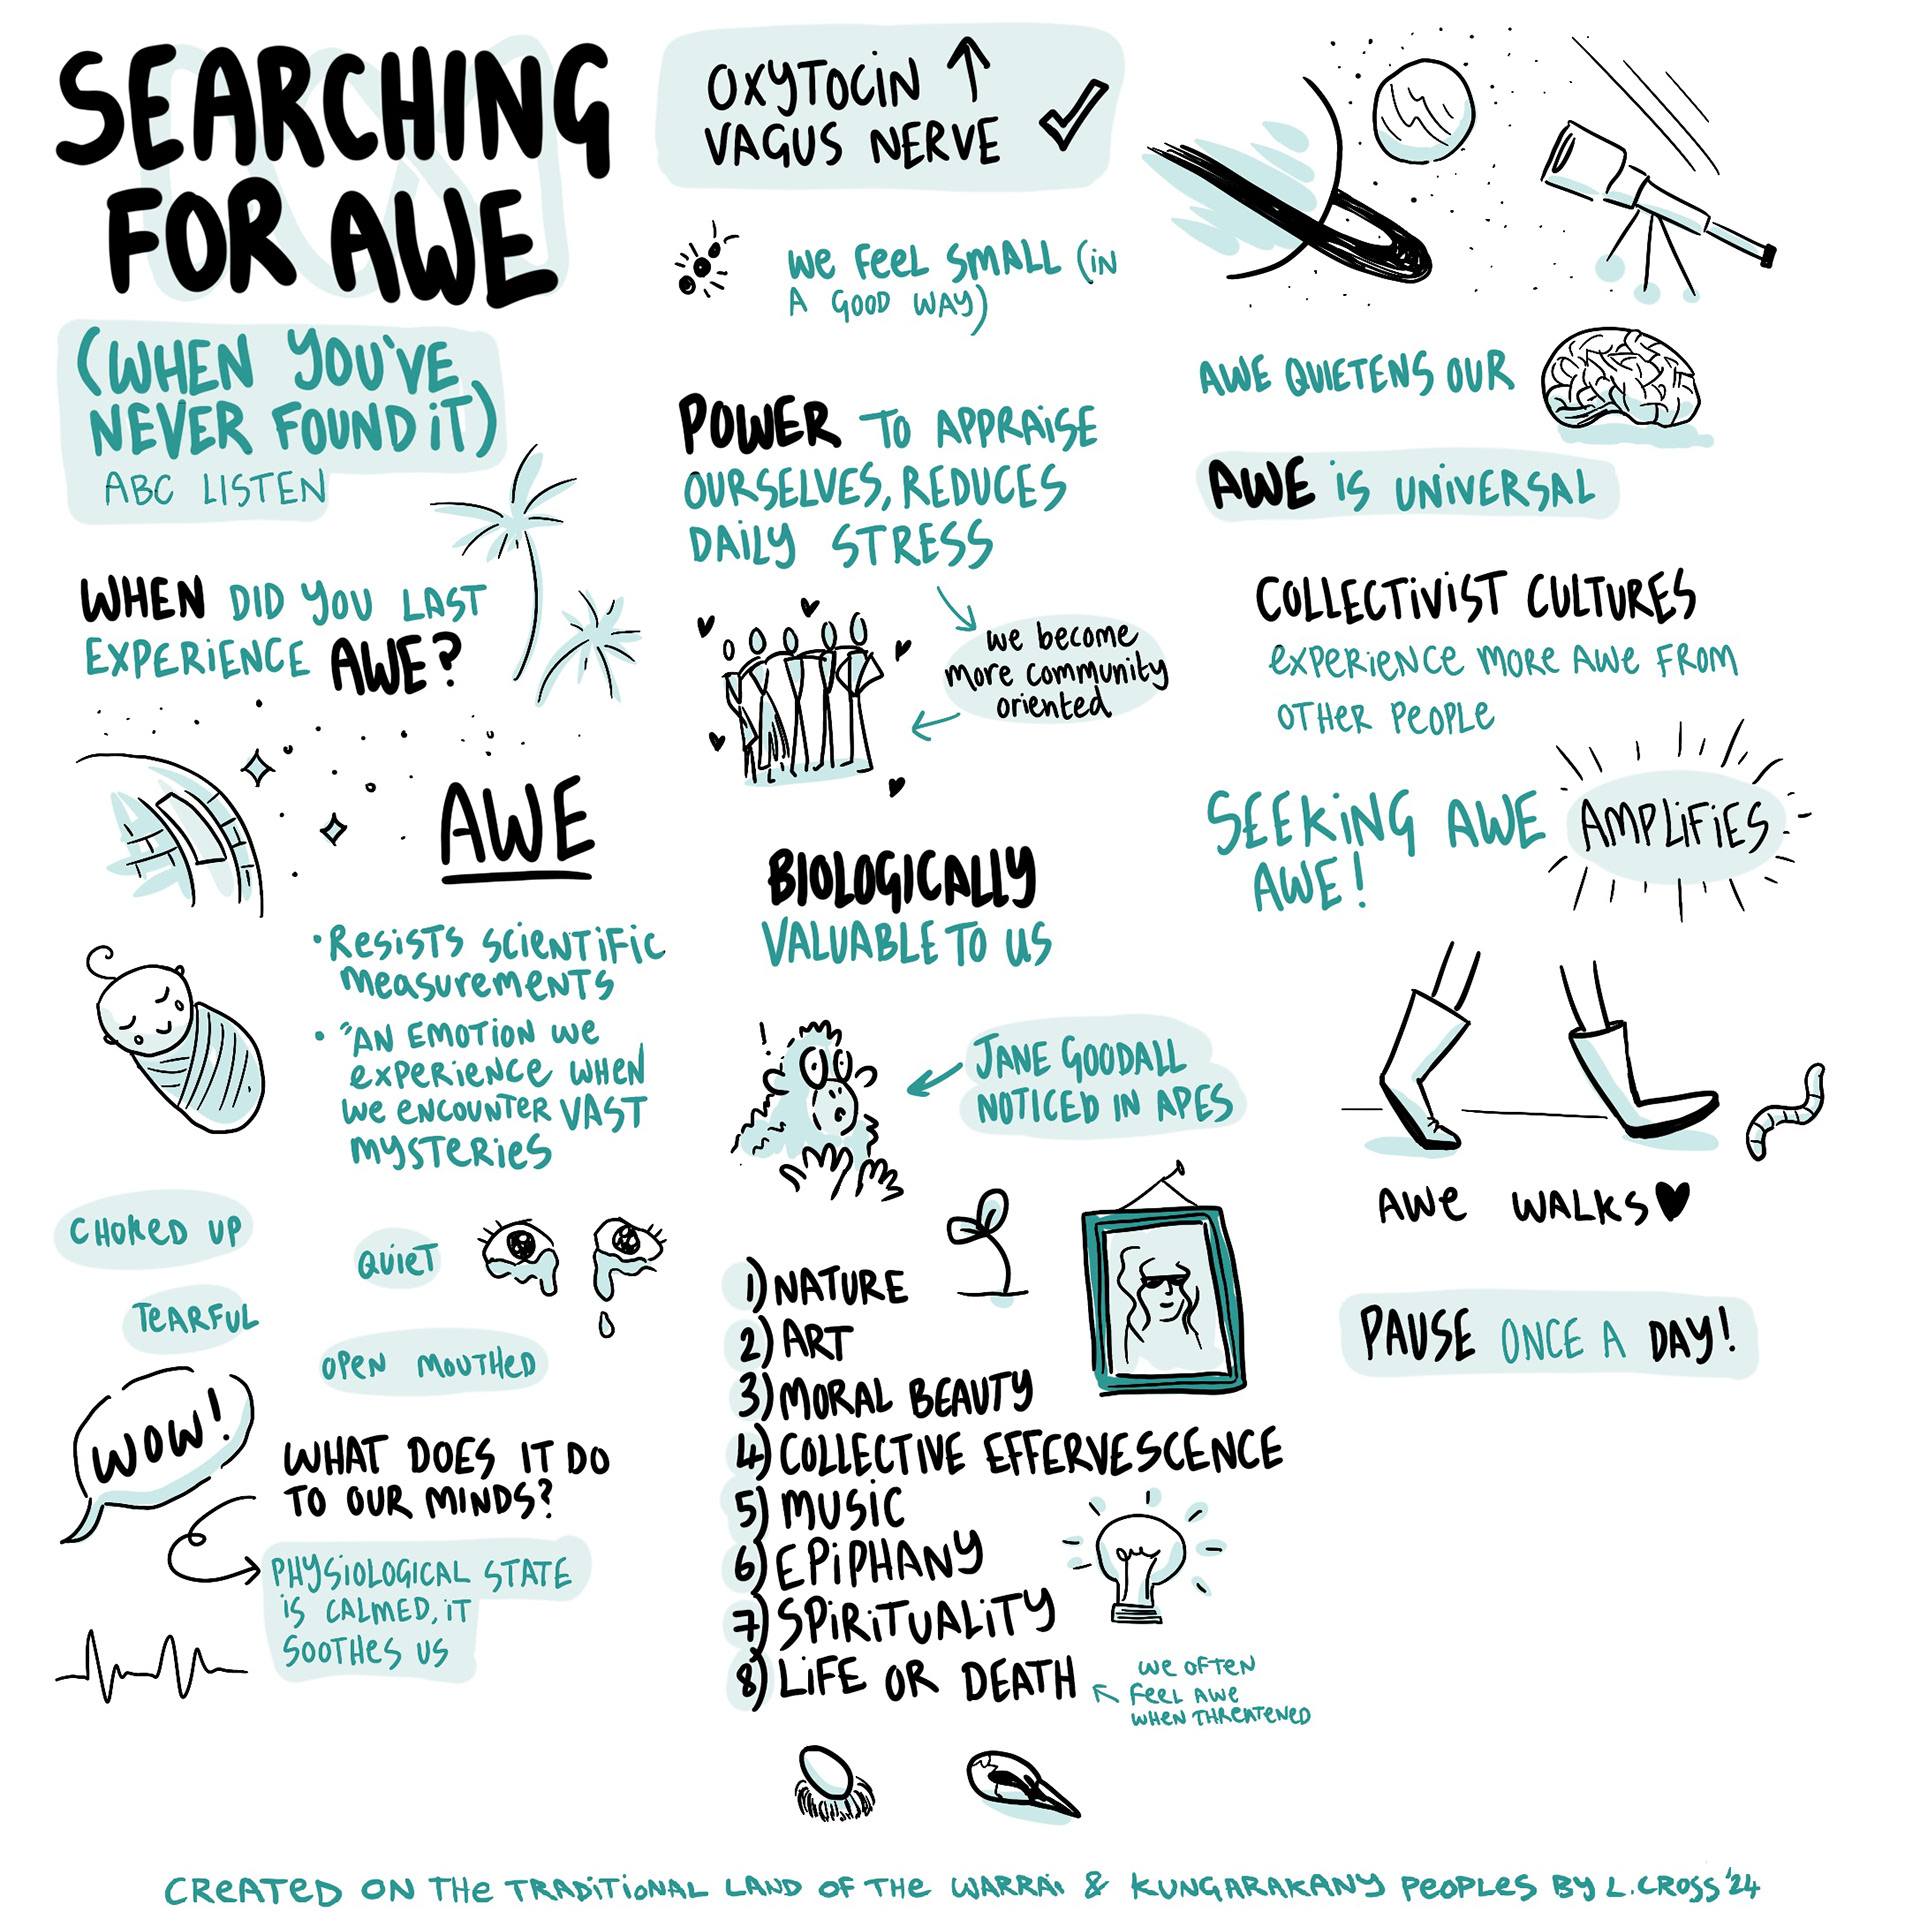 SEARCHING
FOR AWE
(WHEN YOU'VE
NEVER FOUND iT)
ABC LISTEN
WHEN DID YOU LAST
EXPERIENCE AWE?
AWE
• Resists scientific
measurements
• "AN EMOTION we
experience when
we encounter VAST
mysteries
CHOKED UP
QUIET
TEARFUL
OPEN MOUTHED
WOW!
WHAT DOES IT DO
TO OUR MINDS?
PHYSIOLOGICAL STATE
IS CALMED, IT
SOOTHES US
OXYTOCIN ↑
VAGUS NERVE ✓
we feel SMALL (IN
A GOOD WAY)
POWER TO APPRAISE
OURSELVES, REDUCES
DAILY STRESS
we become
more community
oriented
BIOLOGICALLY
VALUABLE TO US
!
JANE GOODALL
NOTICED IN APES
1) NATURE
2) ART
3) MORAL BEAUTY
4) COLLECTIVE EFFERVESCENCE
5) MUSIC
6) EPIPHANY
7) SPIRITUALITY
8) LIFE OR DEATH
we OFTEN
FEEL AWE
WHEN THREATENED
AWE QUIETENS OUR
AWE IS UNIVERSAL
COLLECTIVIST CULTURES
experience more AWE FROM
OTHER PEOPLE
SEEKING AWE AMPLIFIES
AWE!
AWE WALKS♥
PAUSE ONCE A DAY!
CREATED ON THE TRADITIONAL LAND OF THE WARRAI & KUNGARAKANY PEOPLES BY L.CROSS '24